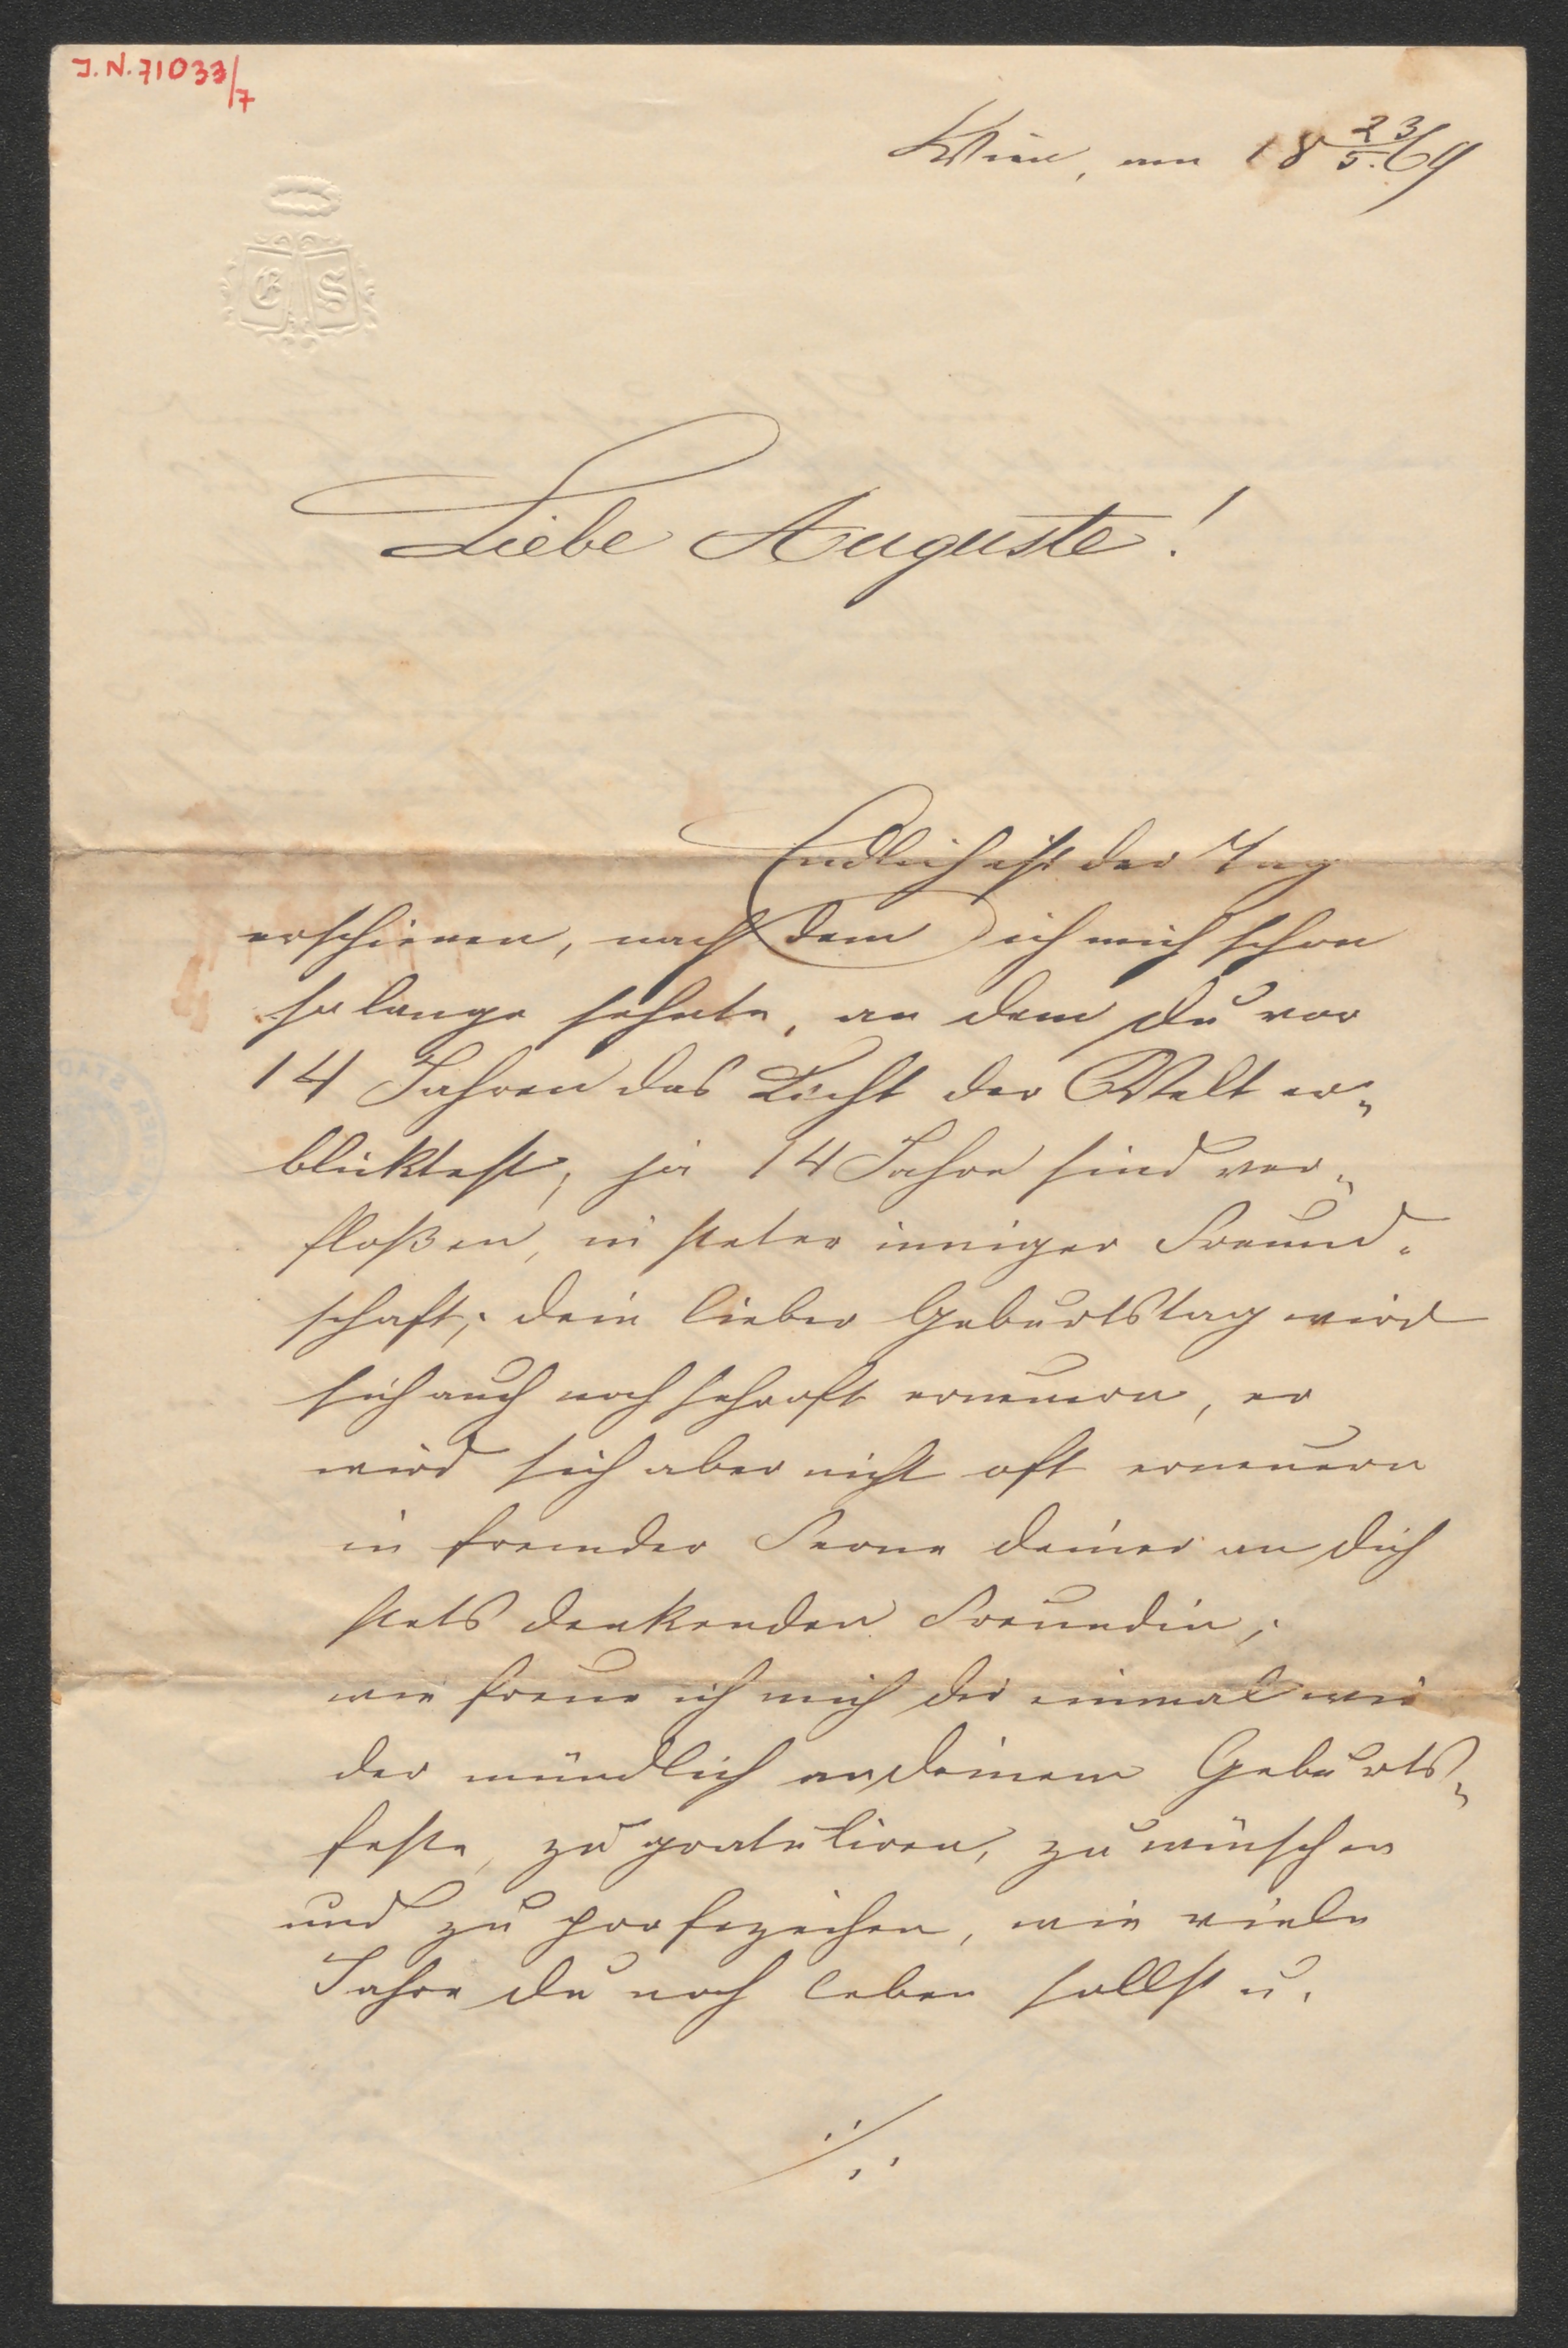 J.N. 71033/7
Wien, am 18 23/5. 69
G S
Liebe Auguste!
Endlich ist der Tag
erschienen, nach dem ich mich schon
so lange sehnte, an dem du vor
14 Jahren das Licht der Welt er„
blicktest, ja 14 Jahre sind ver„
floßen, in steter inniger Freund„
schaft; dein lieber Geburtstag wird
sich auch noch sehr oft erneuern, er
wird sich aber nicht oft erneuern
in fremder Ferne deiner an dich
stets denkenden Freundin;
wie freue ich mich dir einmal wie
der mündlich an deinem Geburts„
feste, zu gratuliren, zu wünschen
und zu profezeihen, wie viele
Jahre du noch leben sollst u.
·/.